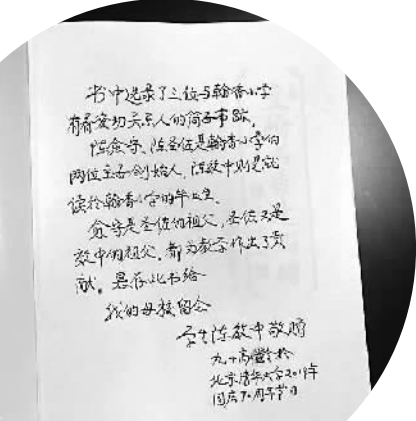 书中选录了三位与翰香小学
有着密切关系人的简要事跡，
陈愈守、陈圣佐是翰香小学的
两位主要创始人，陈敏中则是就
读于翰香小学的毕业生、
愈守是圣佐的祖父，圣佐又是
敏中的祖父。都为教学作出了贡
献。惠存此书给
我的母校留念
学生陈敏中敬赠
九十高龄于
北京清华大学2019年
国庆70周年节日